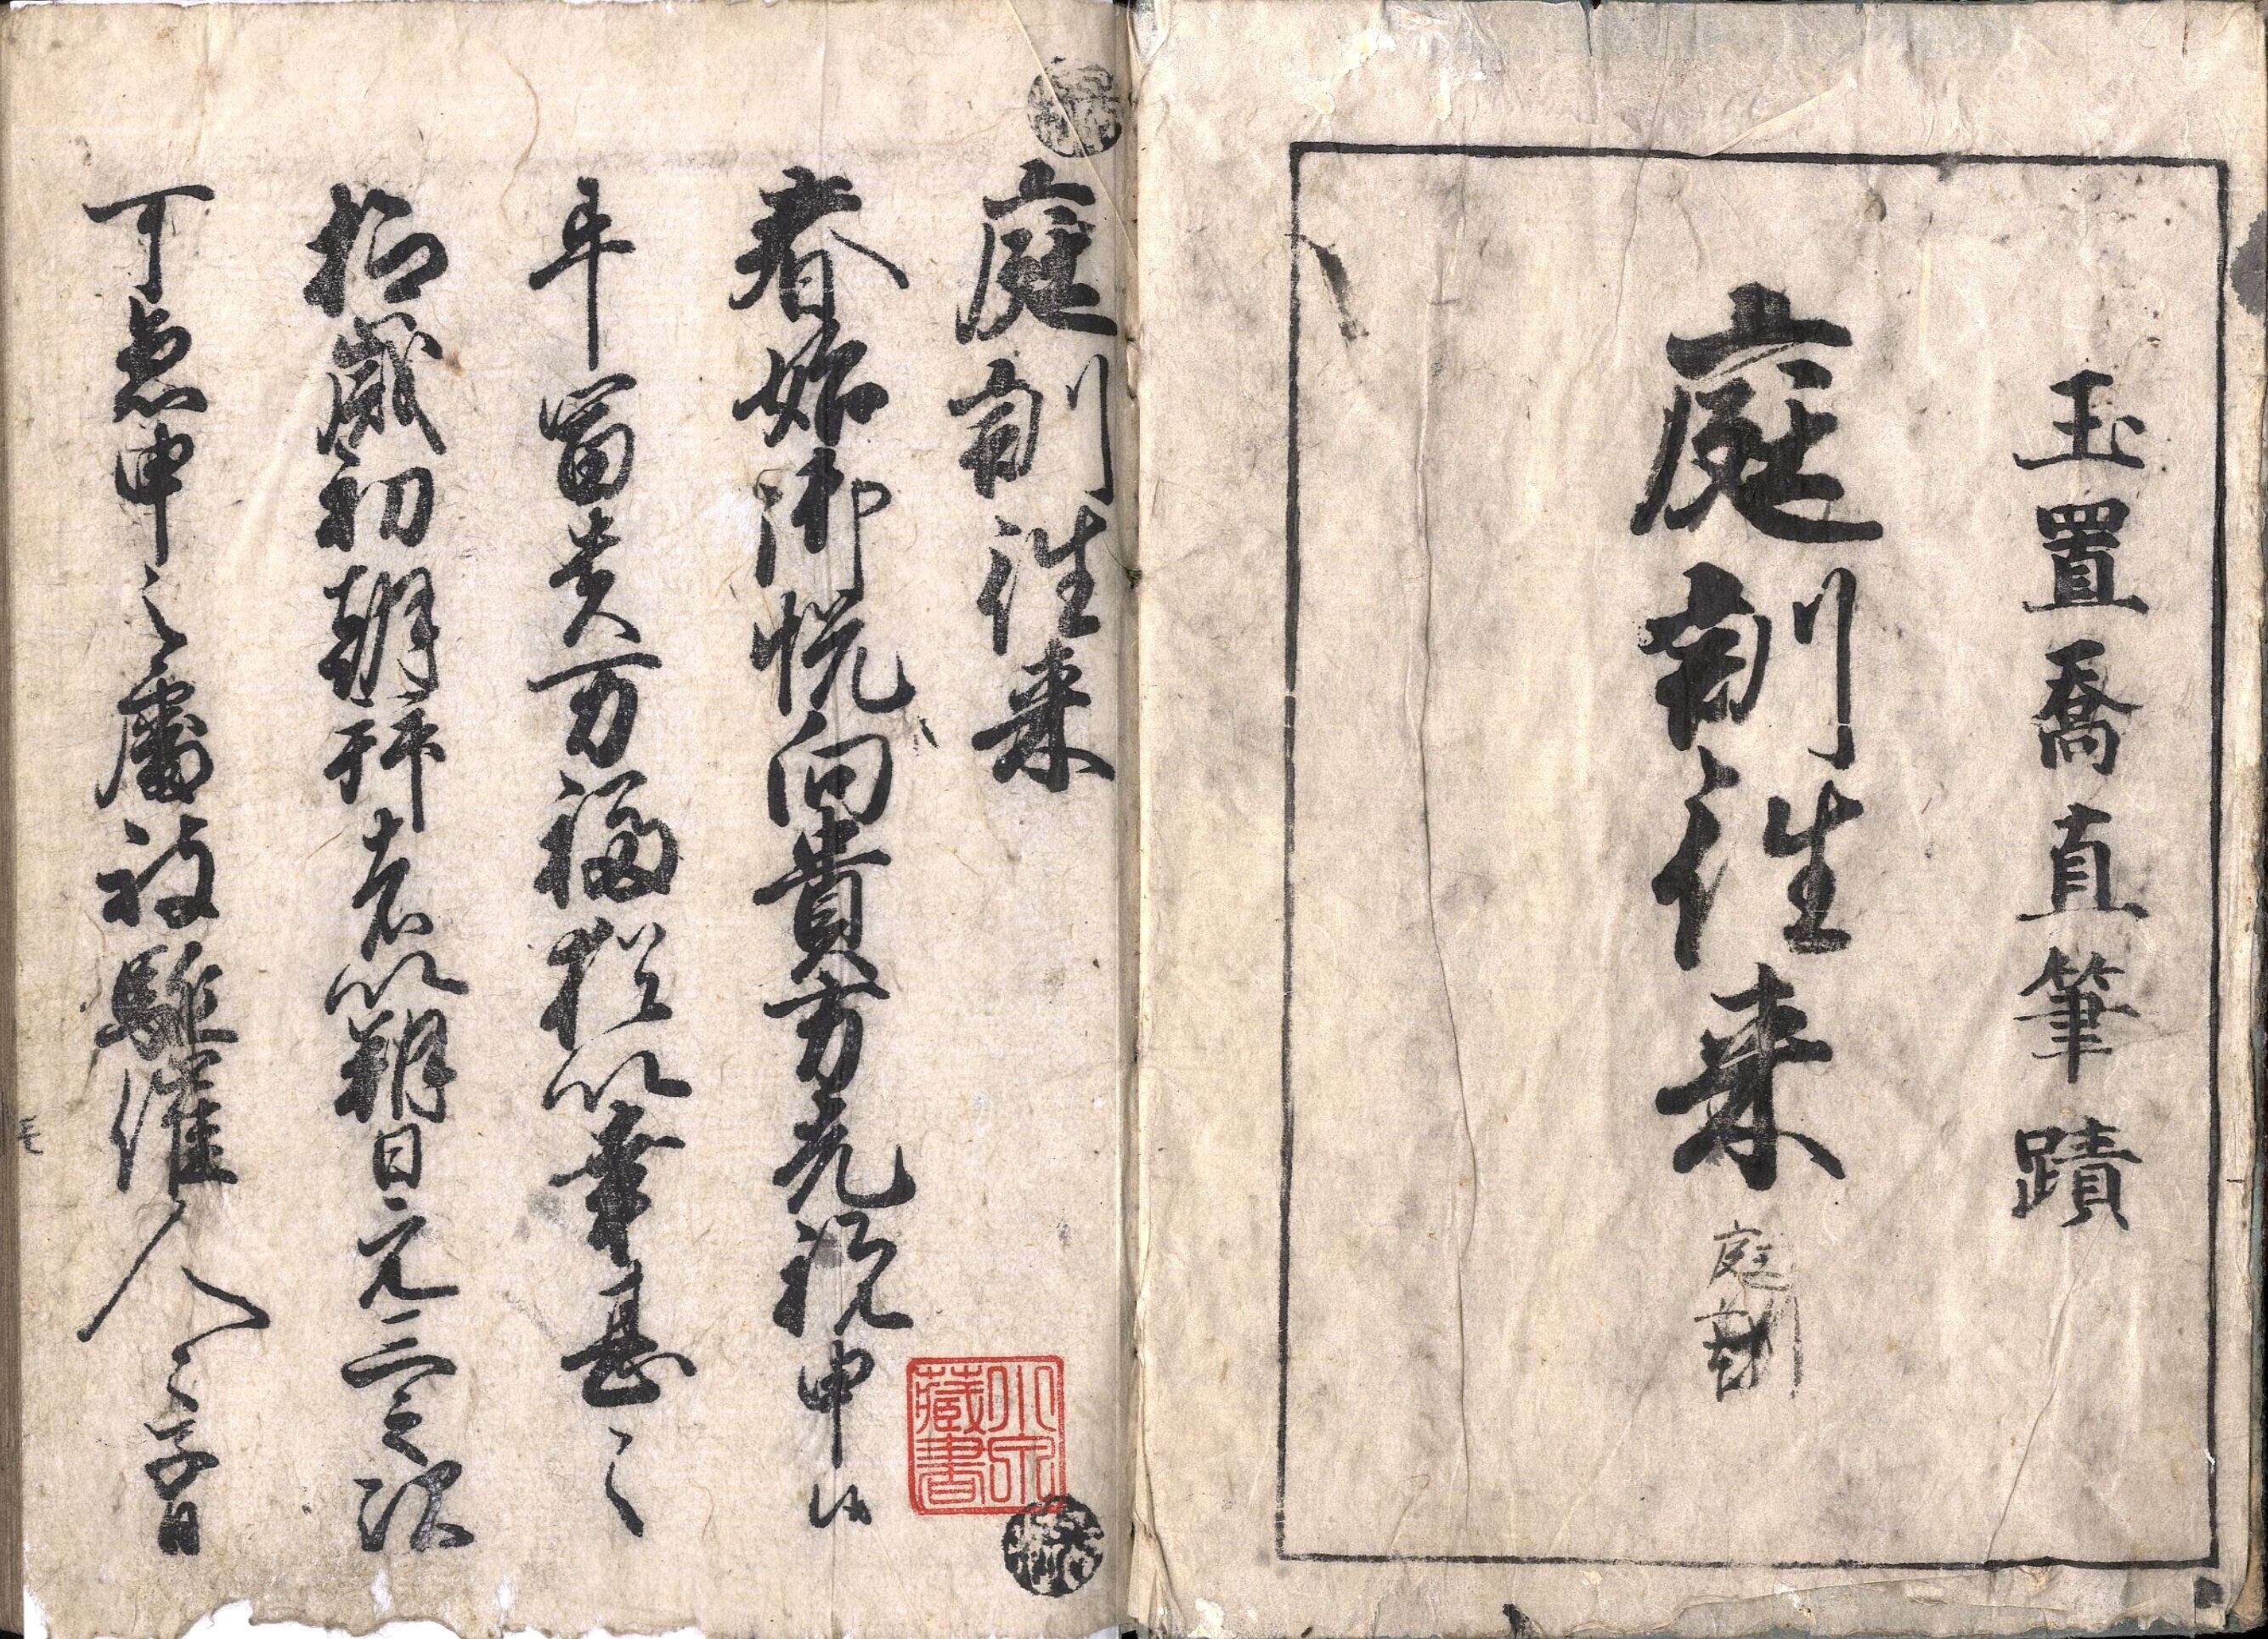 玉置喬直筆蹟
庭訓徃来
庭訓
庭訓徃来
春始御悦向貴方先祝申候
年冨貴万福猶以幸甚〻
抑歳初朝拝者以朔日元三之次
可急申之處被駈催人〻子日
藏書